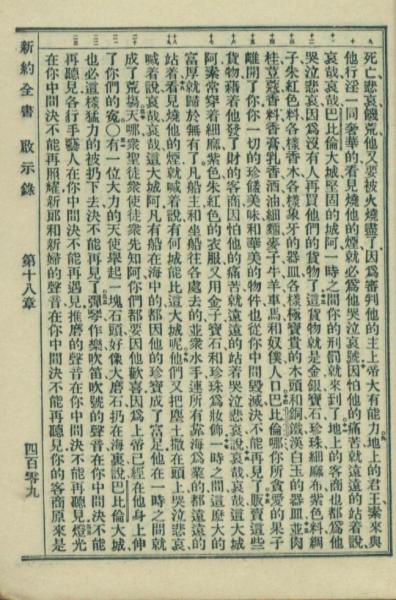 死亡悲哀饑荒他又要被火燒盡了因爲審判他的主上帝大有能力地上的君王素來與
他行淫一同奢華的看見燒他的煙就必爲他哭泣哀號因怕他的痛苦就遠遠的站着說
哀哉哀哉巴比倫大城堅固的城阿一時之間你的刑罰就來到了地上的客商也都爲他
哭泣悲哀因爲沒有人再買他們的貨物了這貨物就是金銀寶石珍珠細麻布紫色料綢
子朱紅色料各樣香木各樣象牙的器皿各樣極寶貴的木頭和銅鐵漢白玉的器皿並肉
桂荳蔻香料香膏乳香酒油細麵麥子牛羊車馬和奴僕人口巴比倫哪你所貪愛的果子
離開了你你一切的珍饈美味和華美的物件也從你中間毀滅決不能再見了販賣這些
貨物藉着他發了財的客商因怕他的痛苦就遠遠的站着哭泣悲哀說哀哉哀哉這大城
阿素常穿着細麻紫色朱紅色的衣服又用金子寶石和珍珠爲妝飾一時之間這麼大的
富厚就歸於無有了凡船主和坐船往各處去的並衆水手連所有靠海爲業的都遠遠的
站着看見燒他的煙就喊着說有何城能比這大城呢他們又把塵土撒在頭上哭泣悲哀
喊着說哀哉哀哉這大城阿凡有船在海中的都因他的珍寶成了富足他在一時之間就
成了荒塲天哪衆聖徒衆使徒衆先知阿你們都要因他歡喜因爲上帝已經在他身上伸
了你們的冤〇有一位大力的天使舉起一塊石頭好像大磨石扔在海裏說巴比倫大城
也必這樣猛力的被扔下去決不能再見了彈琴作樂吹笛吹號的聲音在你中間決不能
再聽見各行手藝人在你中間決不能再遇見推磨的聲音在你中間決不能再聽見燈光
在你中間決不能再照耀新郎和新婦的聲音在你中間決不能再聽見你的客商原來是
新約全書 啟示錄 第十八章 四百零九